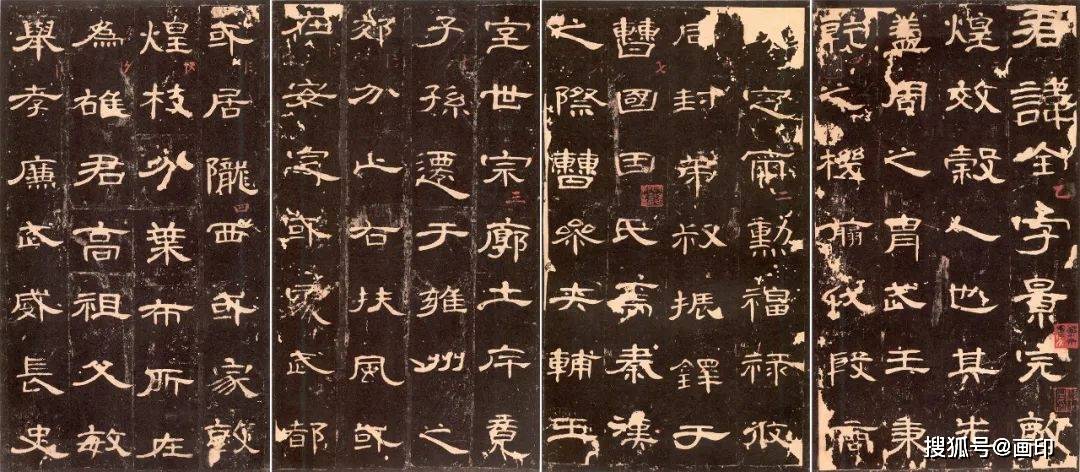 君諱全字景完敦
煌效穀人也其先
蓋周之胄武王秉
乾之機翦伐殷商
定爾勳福祿攸
同封弟叔振鐸于
曹國因氏焉秦漢
之際曹參夾輔王
室世宗廓土斥竟
子孫遷于雍州之
郊分止右扶風或
在安定或處武都
或居隴西或家敦
煌枝分葉布所在
為雄君高祖父敏
舉孝廉武威長史
二
三
四
搜狐号@画印